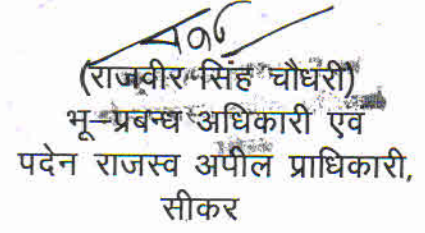 (राजवीर सिंह चौधरी)
भू–प्रबन्ध अधिकारी एव
पदेन राजस्व अपील प्राधिकारी,
सीकर